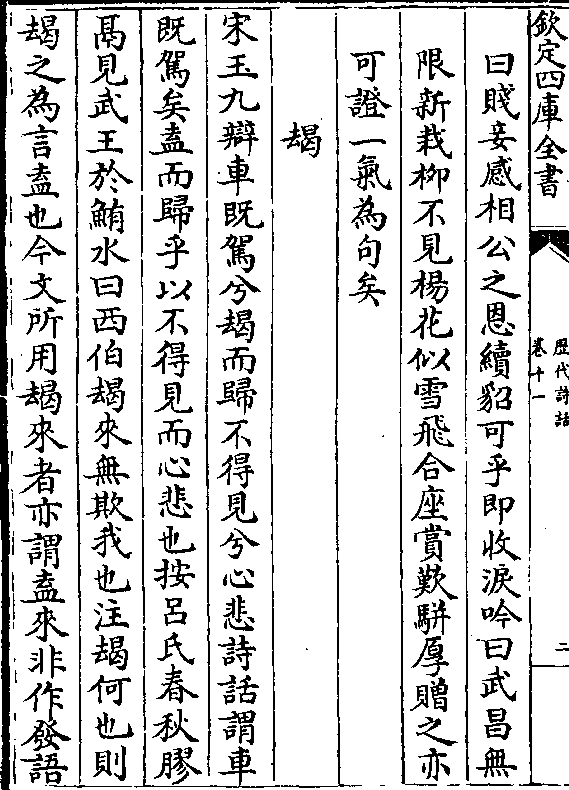 欽定四庫全書
歷代詩話
卷十一
二
曰賤妾感相公之恩續貂可乎即收淚吟曰武昌無
限新栽柳不見楊花似雪飛合座賞歎駢厚贈之亦
可證一氣為句矣
朅
宋玉九辯車既駕兮朅而歸不得見兮心悲詩話謂車
既駕矣盍而歸乎以不得見而心悲也按呂氏春秋膠
鬲見武王於鮪水曰西伯朅來無欺我也注朅何也則
朅之為言盍也今文所用朅來者亦謂盍來非作發語